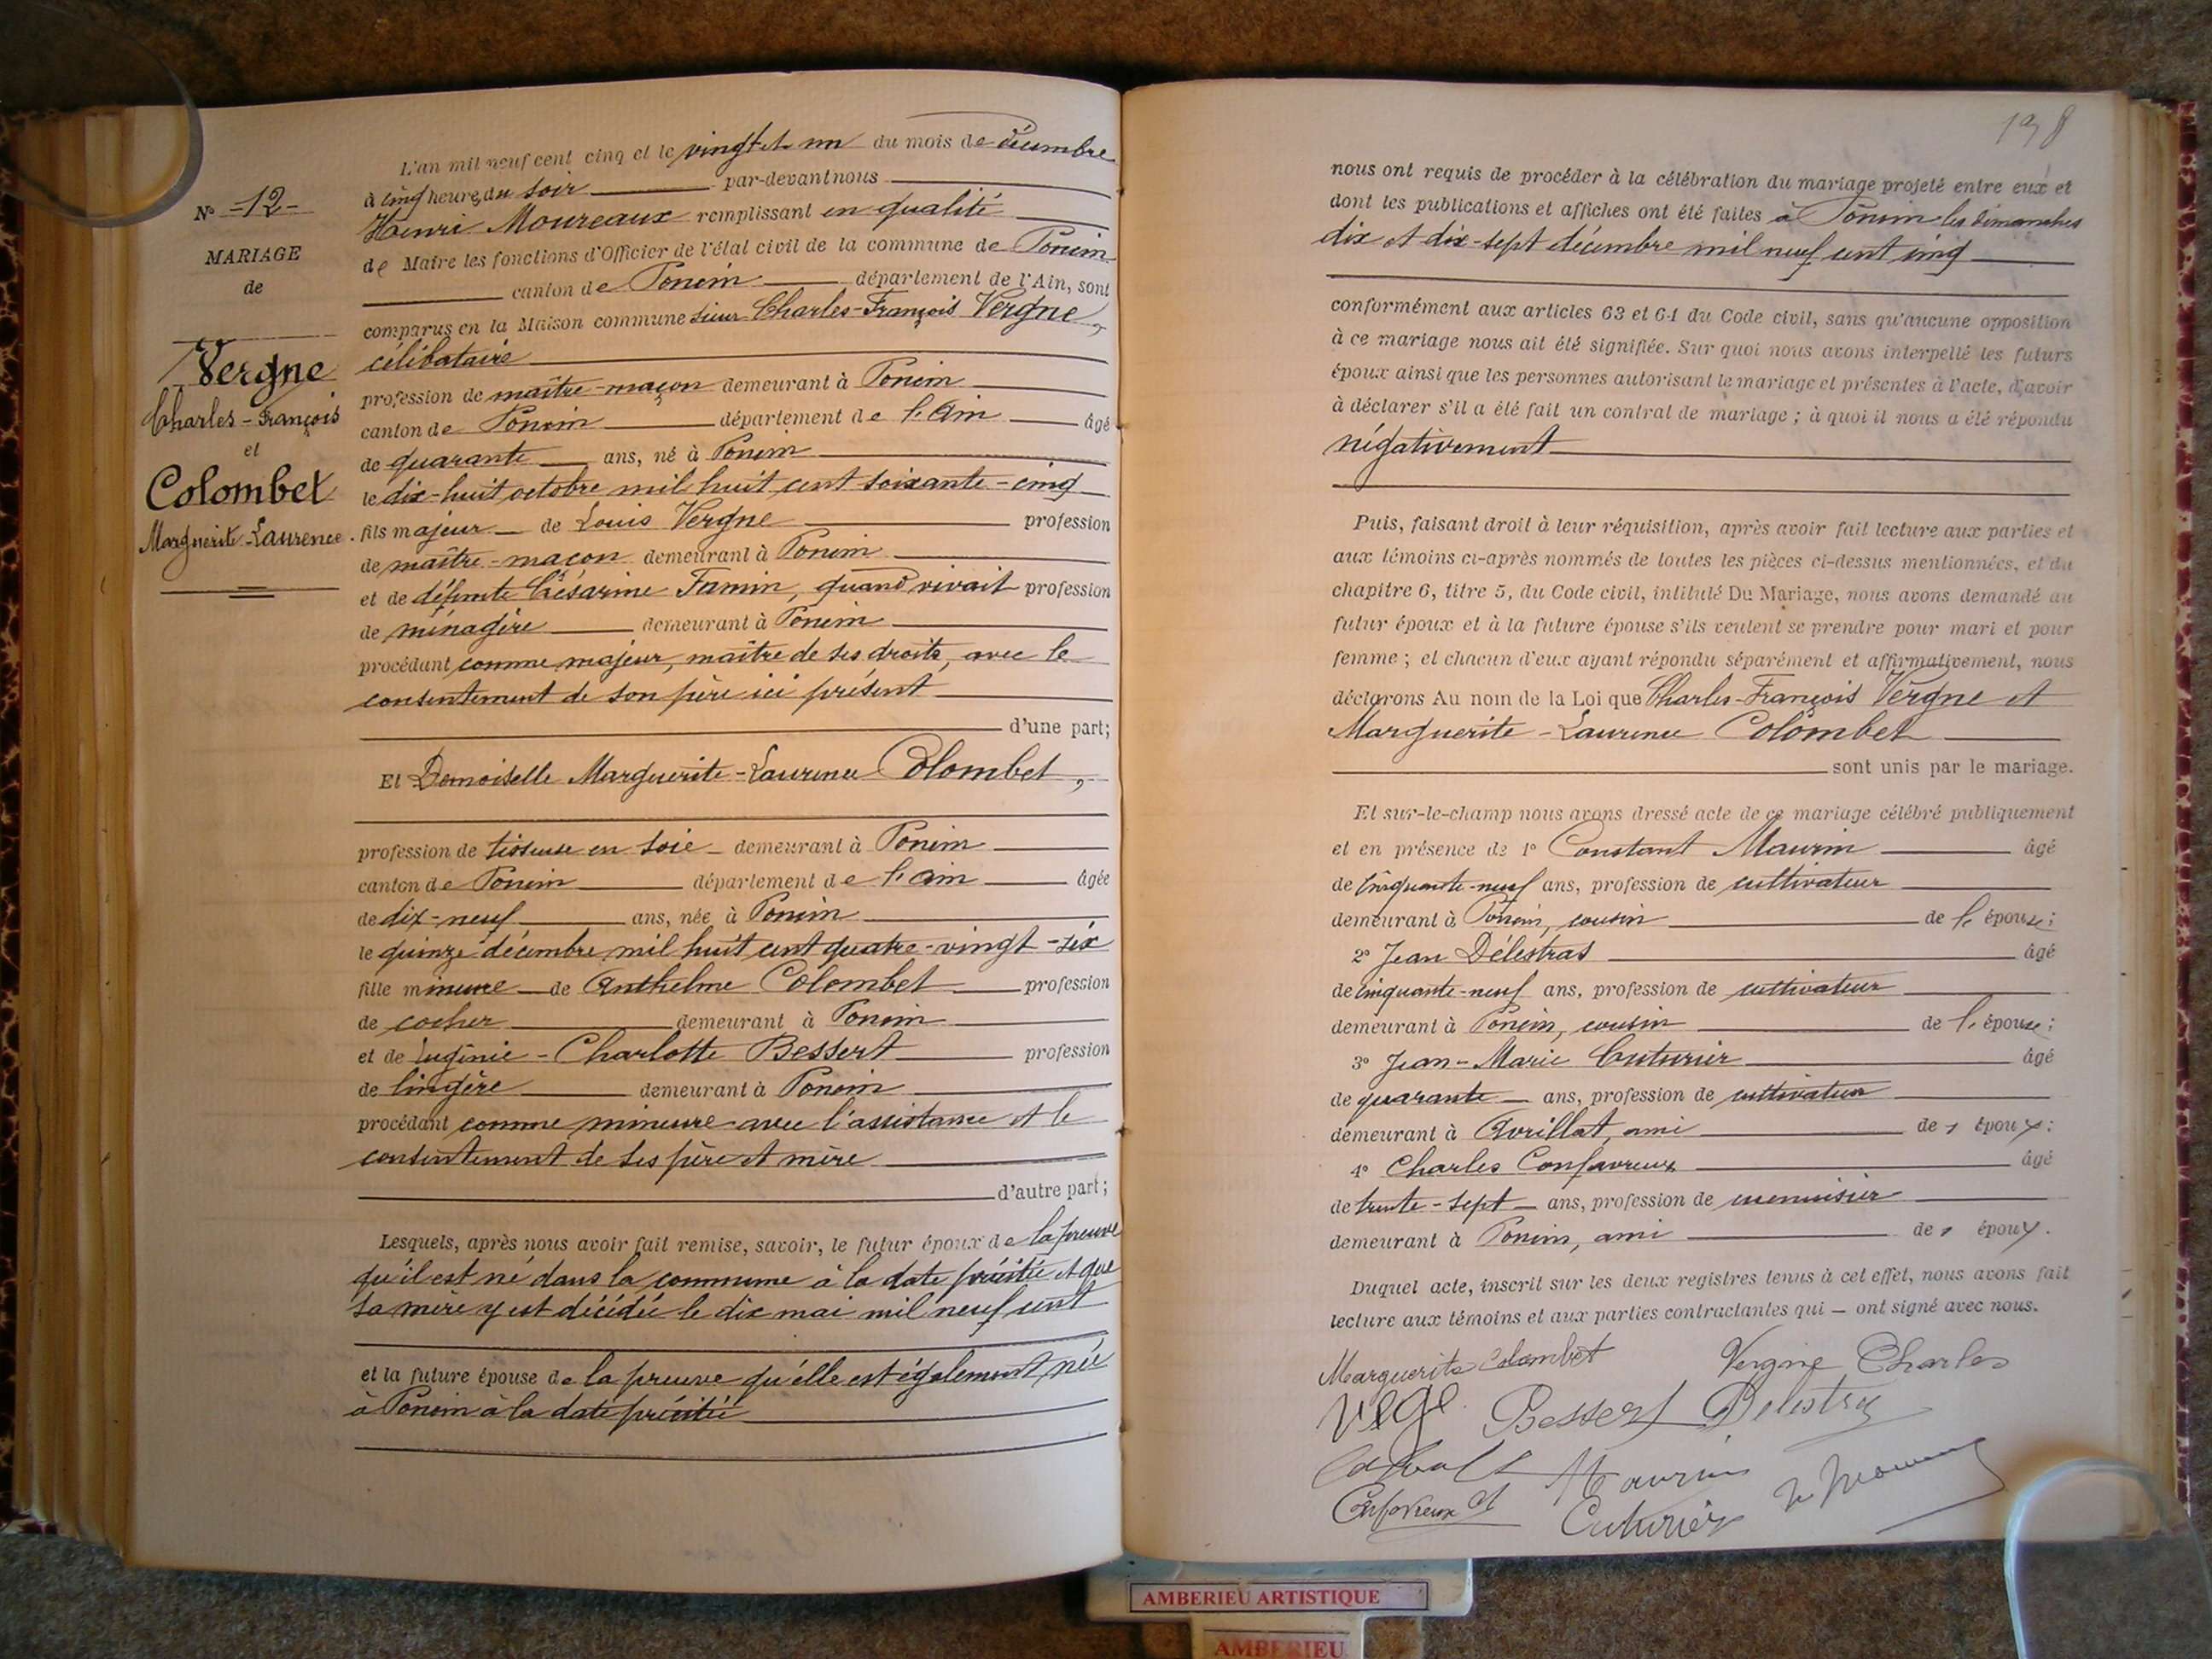 L'an mil neuf cent cinq et le vingt et un du mois de décembre
à cinq heures du soir par-devant nous
Henri Moureaux remplissant en qualité
de Maire les fonctions d'Officier de l'état civil de la commune de Poncin
canton de Poncin département de l'Ain, sont
comparus en la Maison commune sieur Charles-François Vergne,
célibataire
profession de maître-maçon demeurant à Poncin
canton de Poncin département de l'Ain âgé
de quarante ans, né à Poncin
le dix-huit octobre mil huit cent soixante-cinq
fils majeur de Louis Vergne profession
de maître-maçon demeurant à Poncin
et de défunte Césarine Famin, quand vivait profession
de ménagère demeurant à Poncin
procédant comme majeur, maître de ses droits, avec le
consentement de son père ici présent
d'une part;
Et Demoiselle Marguerite-Laurence Colombet,
profession de tisseuse en soie demeurant à Poncin
canton de Poncin département de l'Ain âgée
de dix-neuf ans, née à Poncin
le quinze décembre mil huit cent quatre-vingt-six
fille mineure de Anthelme Colombet profession
de cocher demeurant à Poncin
et de Eugénie-Charlotte Bessert profession
de lingère demeurant à Poncin
procédant comme mineure avec l'assistance et le
consentement de ses père et mère
d'autre part;
Lesquels, après nous avoir fait remise, savoir, le futur époux de la preuve
qu'il est né dans la commune à la date précitée et que
sa mère y est décédée le dix mai mil neuf cent
et la future épouse de la preuve qu'elle est également née
à Poncin à la date précitée
N° -12-
MARIAGE
de
Vergne
Charles-François
et
Colombet
Marguerite-Laurence.
198
nous ont requis de procéder à la célébration du mariage projeté entre eux et
dont les publications et affiches ont été faites à Poncin les dimanches
dix et dix-sept décembre mil neuf cent cinq
conformément aux articles 63 et 64 du Code civil, sans qu'aucune opposition
à ce mariage nous ait été signifiée. Sur quoi nous avons interpellé les futurs
époux ainsi que les personnes autorisant le mariage et présentes à l'acte, d'avoir
à déclarer s'il a été fait un contrat de mariage ; à quoi il nous a été répondu
négativement
Puis, faisant droit à leur réquisition, après avoir fait lecture aux parties et
aux témoins ci-après nommés de toutes les pièces ci-dessus mentionnées, et du
chapitre 6, titre 5, du Code civil, intitulé Du Mariage, nous avons demandé au
futur époux et à la future épouse s'ils veulent se prendre pour mari et pour
femme ; et chacun d'eux ayant répondu séparément et affirmativement, nous
déclarons Au nom de la Loi que Charles-François Vergne et
Marguerite-Laurence Colombet
sont unis par le mariage.
Et sur-le-champ nous avons dressé acte de ce mariage célébré publiquement
et en présence de 1° Constant Maurin âgé
de cinquante-neuf ans, profession de cultivateur
demeurant à Poncin, cousin de l'épouse;
2° Jean Délestras âgé
de cinquante-neuf ans, profession de cultivateur
demeurant à Poncin, cousin de l'épouse;
3° Jean-Marie Cuturier âgé
de quarante ans, profession de cultivateur
demeurant à Avrillat, ami de l'époux;
4° Charles Confavreux âgé
de trente-sept ans, profession de menuisier
demeurant à Poncin, ami de l'époux.
Duquel acte, inscrit sur les deux registres tenus à cet effet, nous avons fait
lecture aux témoins et aux parties contractantes qui — ont signé avec nous.
Marguerite Colombet Vergne Charles
Bessert Delestras
Maurin
Confavreux Cuturier
AMBERIEU ARTISTIQUE
AMBERIEU